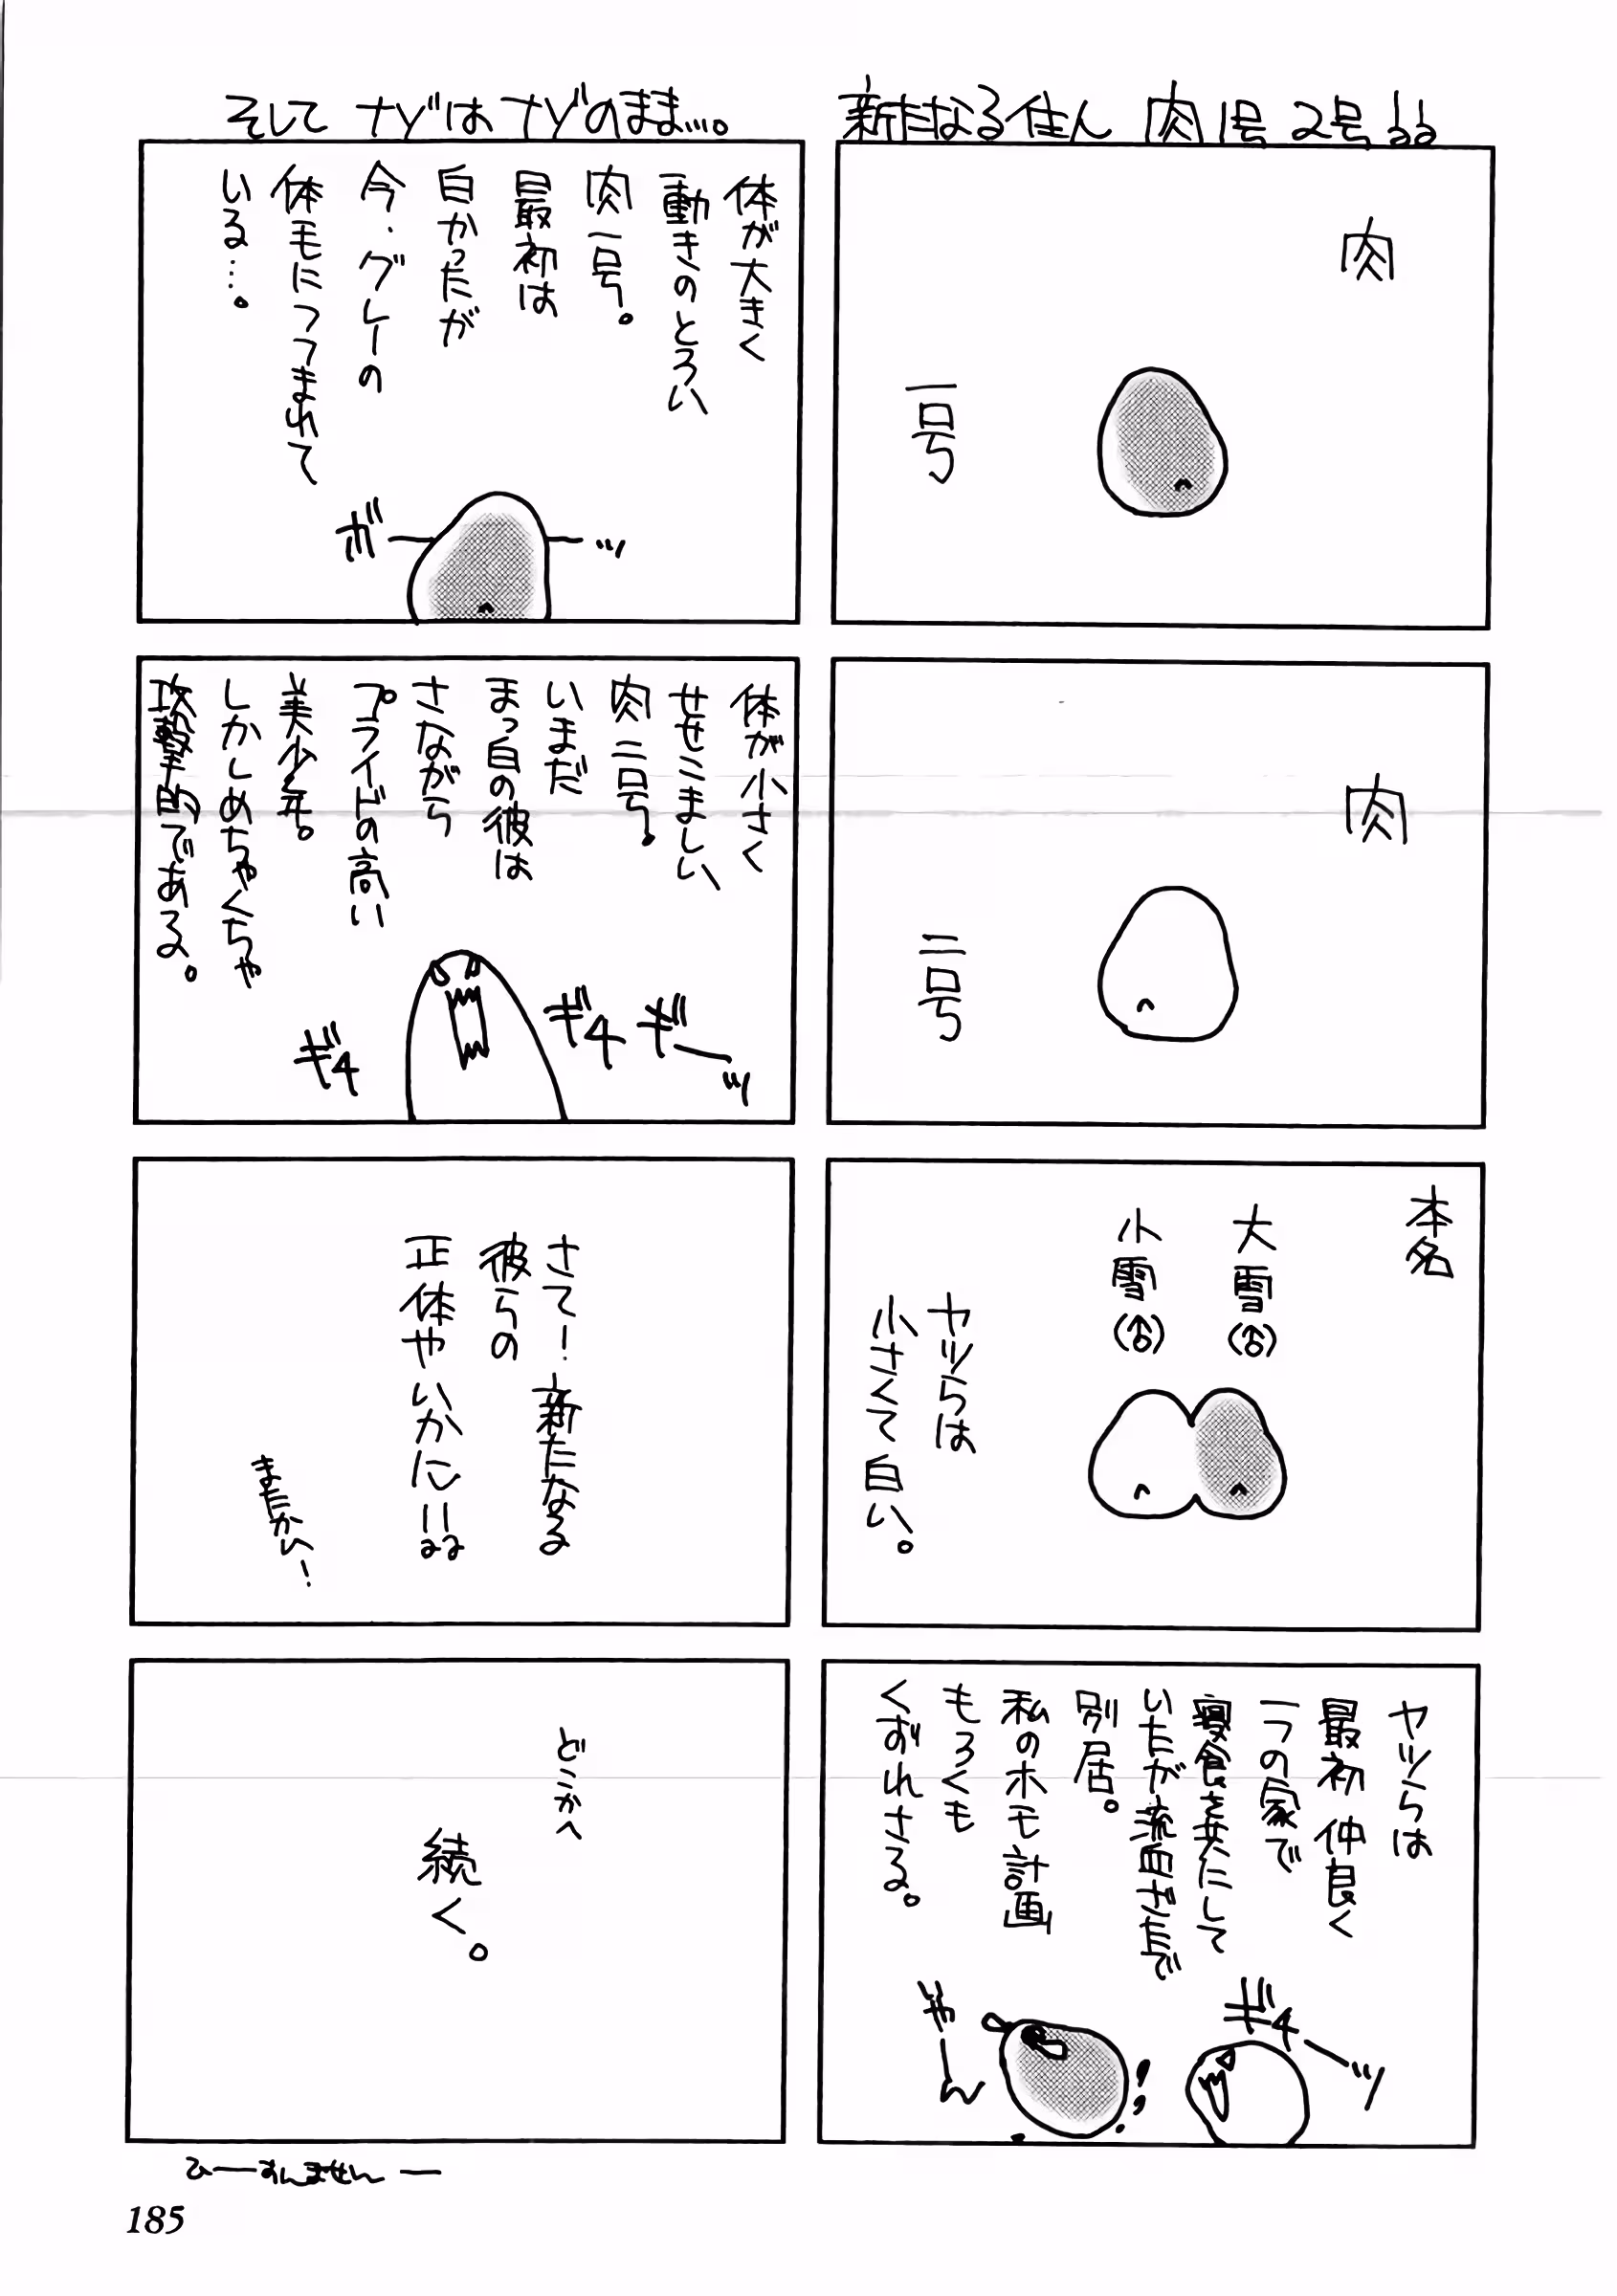 新たなる住人 肉1号2号!!
肉
一号
肉
二号
本名
大雪(♂)
小雪(♂)
ヤツらは
小さくて白い。
ヤツらは
最初仲良く
一つの家で
寝食を共にして
いたが流血ざたで
別居。
私のホモ計画
もろくも
くずれさる。
ギィーッ
いやーん
そしてナゾはナゾのまま…。
体が大きく
動きのとろい
肉一号。
最初は
白かったが
今・グレーの
体毛につつまれて
いる…。
ボーッ
体が小さく
せせこましい
肉二号。
いまだ
まっ白の彼は
さながら
プライドの高い
美少年。
しかしめちゃくちゃ
攻撃的である。
ギィギーッ
ギィ
さて!新たなる
彼らの
正体やいかに!!
またかい!
どこかへ
続く。
ひーすんませんー
185